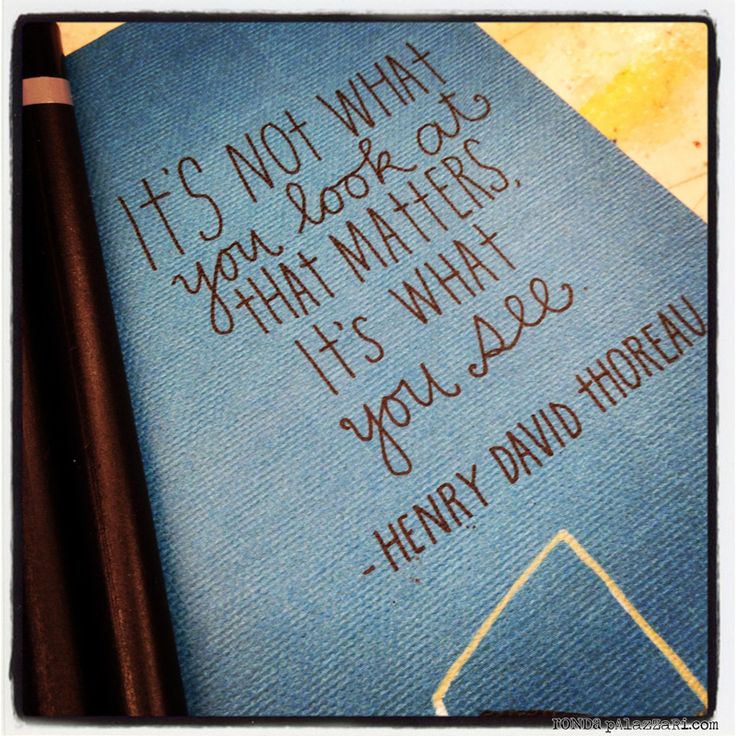 It's NOt WHAt
you look at
tHAt MAttERS.
It's WHAt
you see.
-HENRY DAVID tHOREAU
TONDa pAlaZZaRi.com